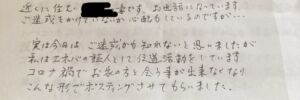 近くに住む 者です。お世話になっています。
ご迷惑をかけていないか心配もしているのですが…
実は今日は ご迷惑かも知れないと思いましたが
私は 人として 伝道活動をしています
コロナ禍でお家の方と会う事が出来なくなり
こんな形でポスティングさせてもらいました。